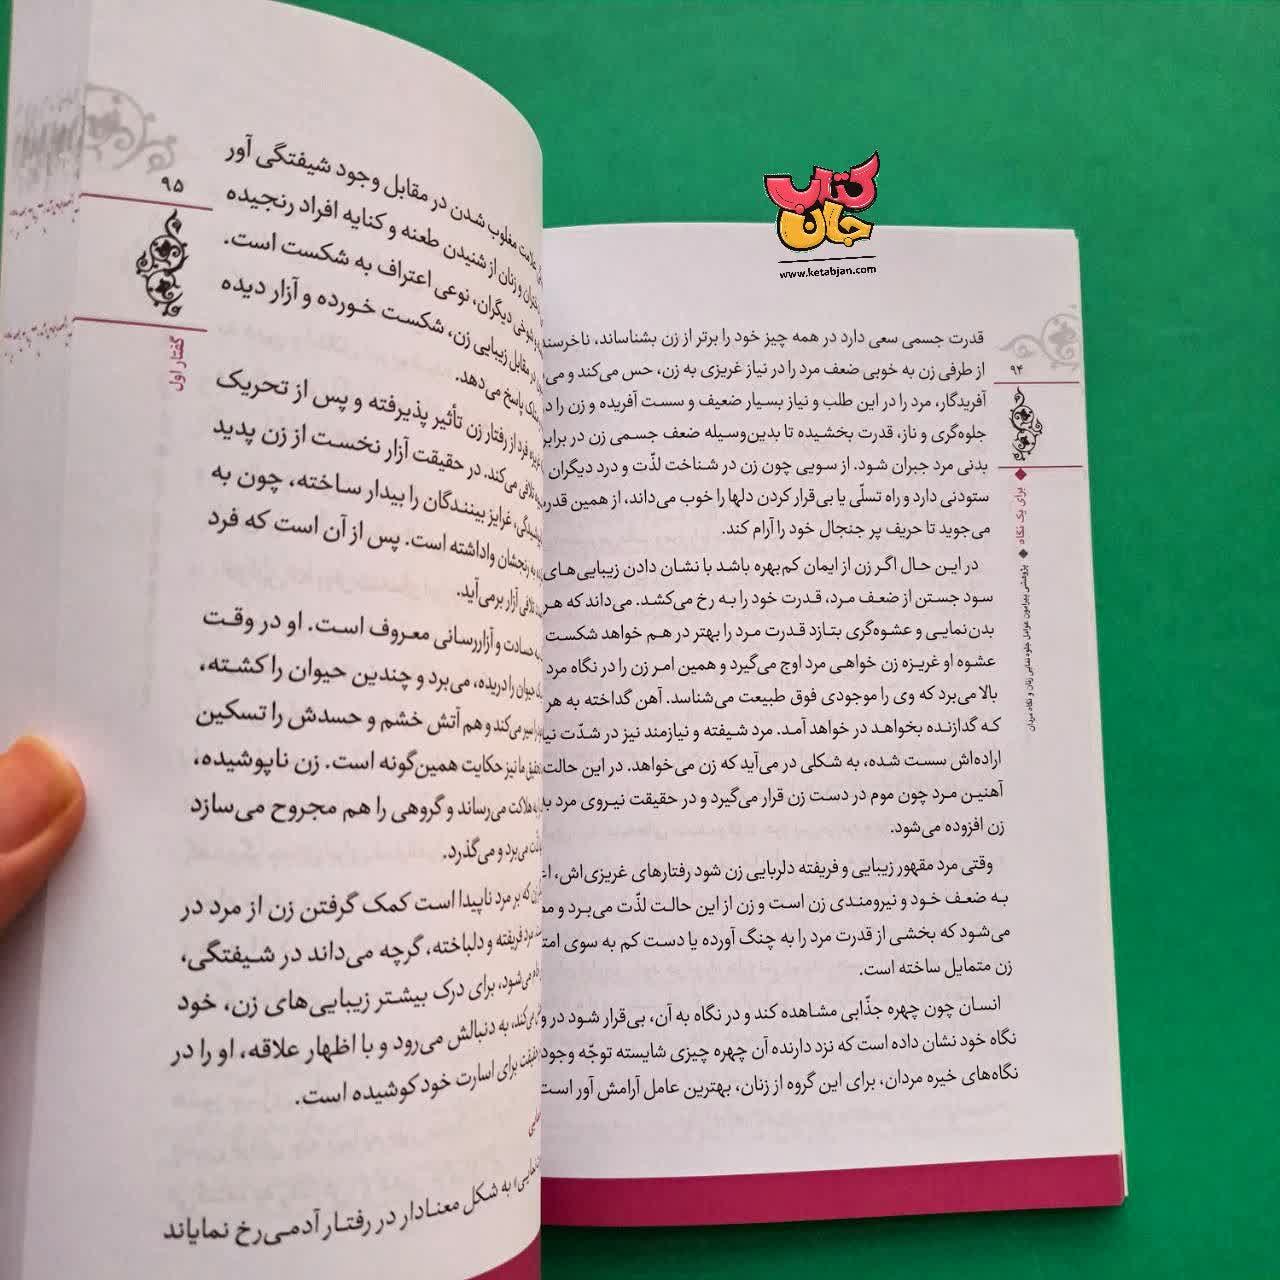 کتاب
جان
www.ketabjan.com
۹۴
برای یک نگاه ◆ پژوهشی پیرامون عوامل جلوه‌نمایی زنان و نگاه مردان
قدرت جسمی سعی دارد در همه چیز خود را برتر از زن بشناساند، ناخرسند
از طرفی زن به خوبی ضعف مرد را در نیاز غریزی به زن، حس می‌کند و می
آفریدگار، مرد را در این طلب و نیاز بسیار ضعیف و سست آفریده و زن را در
جلوه‌گری و ناز، قدرت بخشیده تا بدین‌وسیله ضعف جسمی زن در برابر
بدنی مرد جبران شود. از سویی چون زن در شناخت لذّت و درد دیگران
ستودنی دارد و راه تسلّی یا بی‌قرار کردن دلها را خوب می‌داند، از همین قدر
می‌جوید تا حریف پر جنجال خود را آرام کند.
در این حال اگر زن از ایمان کم‌بهره باشد با نشان دادن زیبایی‌های
سود جستن از ضعف مرد، قدرت خود را به رخ می‌کشد. می‌داند که هر
بدن‌نمایی و عشوه‌گری بتازد قدرت مرد را بهتر در هم خواهد شکست
عشوه او غریزه زن خواهی مرد اوج می‌گیرد و همین امر زن را در نگاه مرد
بالا می‌برد که وی را موجودی فوق طبیعت می‌شناسد. آهن گداخته به هر
که گدازنده بخواهد در خواهد آمد. مرد شیفته و نیازمند نیز در شدّت
اراده‌اش سست شده، به شکلی در می‌آید که زن می‌خواهد. در این حالت
آهنین مرد چون موم در دست زن قرار می‌گیرد و در حقیقت نیروی مرد به
زن افزوده می‌شود.
وقتی مرد مقهور زیبایی و فریفته دلربایی زن شود رفتارهای غریزی‌اش،
به ضعف خود و نیرومندی زن است و زن از این حالت لذّت می‌برد و
می‌شود که بخشی از قدرت مرد را به چنگ آورده یا دست کم به سوی
زن متمایل ساخته است.
انسان چون چهره جذّابی مشاهده کند و در نگاه به آن، بی‌قرار شود در
نگاه خود نشان داده است که نزد دارنده آن چهره چیزی شایسته توجّه وجود
نگاه‌های خیره مردان، برای این گروه از زنان، بهترین عامل آرامش آور است
۹۵
گفتار اول
علامت مغلوب شدن در مقابل وجود شیفتگی آور
و زنان از شنیدن طعنه و کنایه افراد رنجیده
و شوخی دیگران، نوعی اعتراف به شکست است.
در مقابل زیبایی زن، شکست خورده و آزار دیده
پاسخ می‌دهد.
فرد از رفتار زن تأثیر پذیرفته و پس از تحریک
تلافی می‌کند. در حقیقت آزار نخست از زن پدید
غرایز بینندگان را بیدار ساخته، چون به
به رنجشان واداشته است. پس از آن است که فرد
تلافی آزار برمی‌آید.
و آزاررسانی معروف است. او در وقت
حیوان را دریده، می‌برد و چندین حیوان را کشته،
سیر می‌کند و هم آتش خشم و حسدش را تسکین
ما نیز حکایت همین‌گونه است. زن ناپوشیده،
به هلاکت می‌رساند و گروهی را هم مجروح می‌سازد
می‌برد و می‌گذرد.
که بر مرد ناپیدا است کمک گرفتن زن از مرد در
مرد فریفته و دلباخته، گرچه می‌داند در شیفتگی،
می‌شود، برای درک بیشتر زیبایی‌های زن، خود
می‌کند، به دنبالش می‌رود و با اظهار علاقه، او را در
برای اسارت خود کوشیده است.
به شکل معنادار در رفتار آدمی رخ نمایاند